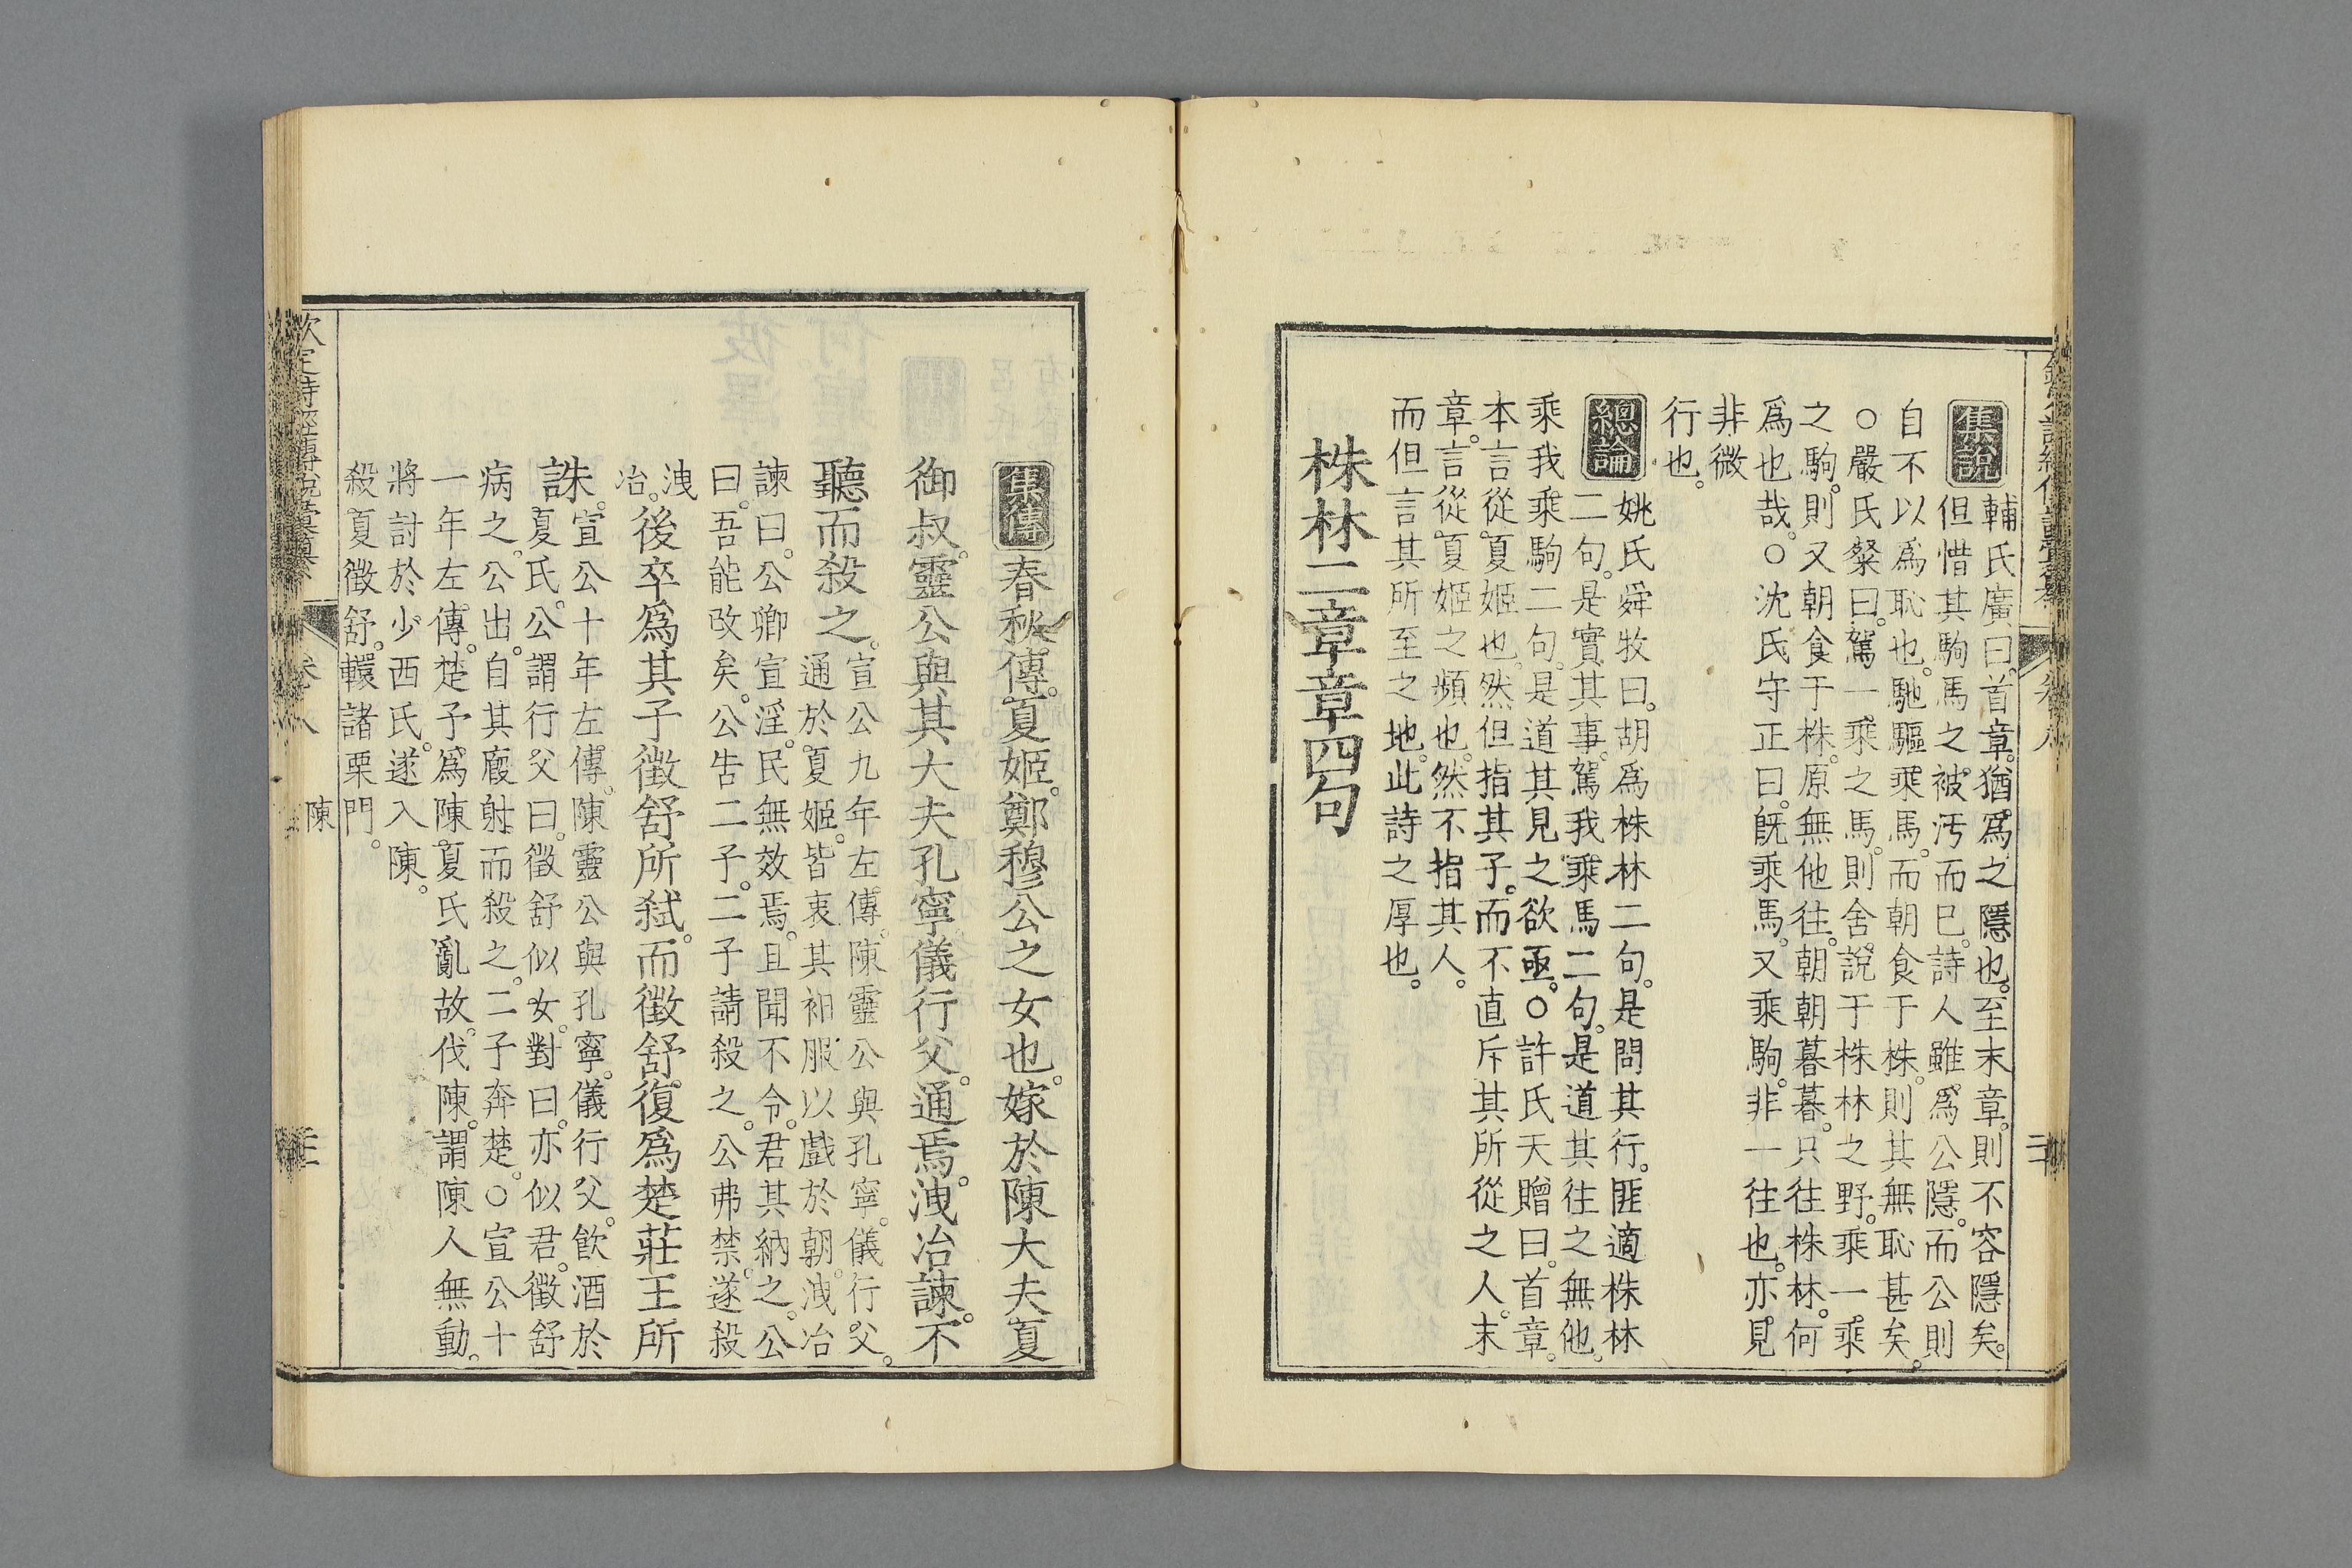 集說
輔氏廣曰。首章。猶。爲之隱也。至末章。則不容隱矣。
但惜其駒馬之。被汚而已。詩人雖。爲公隱。而公則
自不以爲恥也。馳驅乘馬。而朝食于株。則其無恥甚矣。
○嚴氏粲曰。駕一乘之馬。則舍說于株林之野。乘一乘
之駒。則又朝食于株。原無他往。朝朝暮暮。只往株林。何
爲也哉。○沈氏守正曰。旣乘馬。又乘駒。非一往也。亦見
非微
行也。
總論
姚氏舜牧曰。胡爲株林二句。是問其行。匪適株林
二句。是實其事。駕我乘馬二句。是道其往之無他。
乘我乘駒二句。是道其見之欲亟。○許氏天贈曰。首章。
本言從夏姬也。然但指其子。而不直斥其所從之人。末
章。言從夏姬之頻也。然不指其人。
而但言其所至之地。此詩之厚也。
株林二章章四句
集傳
春秋傳。夏姬。鄭穆公之女也。嫁於陳大夫夏
御叔。靈公與其大夫孔寧儀行父。通焉。洩冶諫。不
聽而殺之。
宣公九年左傳。陳靈公與孔寧。儀行父。
通於夏姬。皆衷其衵服以戲於朝。洩冶
諫曰。公卿宣淫。民無效焉。且聞不令。君其納之。公
曰。吾能改矣。公告二子。二子請殺之。公弗禁。遂殺
洩
冶。
後卒爲其子徵舒所弒。而徵舒復爲楚莊王所
誅。
宣公十年左傳。陳靈公與孔寧。儀行父。飮酒於
夏氏。公謂行父曰。徵舒似女。對曰。亦似君。徵舒
病之。公出。自其廏射而殺之。二子奔楚。○宣公十
一年左傳。楚子。爲陳夏氏亂故。伐陳。謂陳人無動。
將討於少西氏。遂入陳。
殺夏徵舒。轘諸栗門。
欽定詩經傳說彙纂
卷八
陳